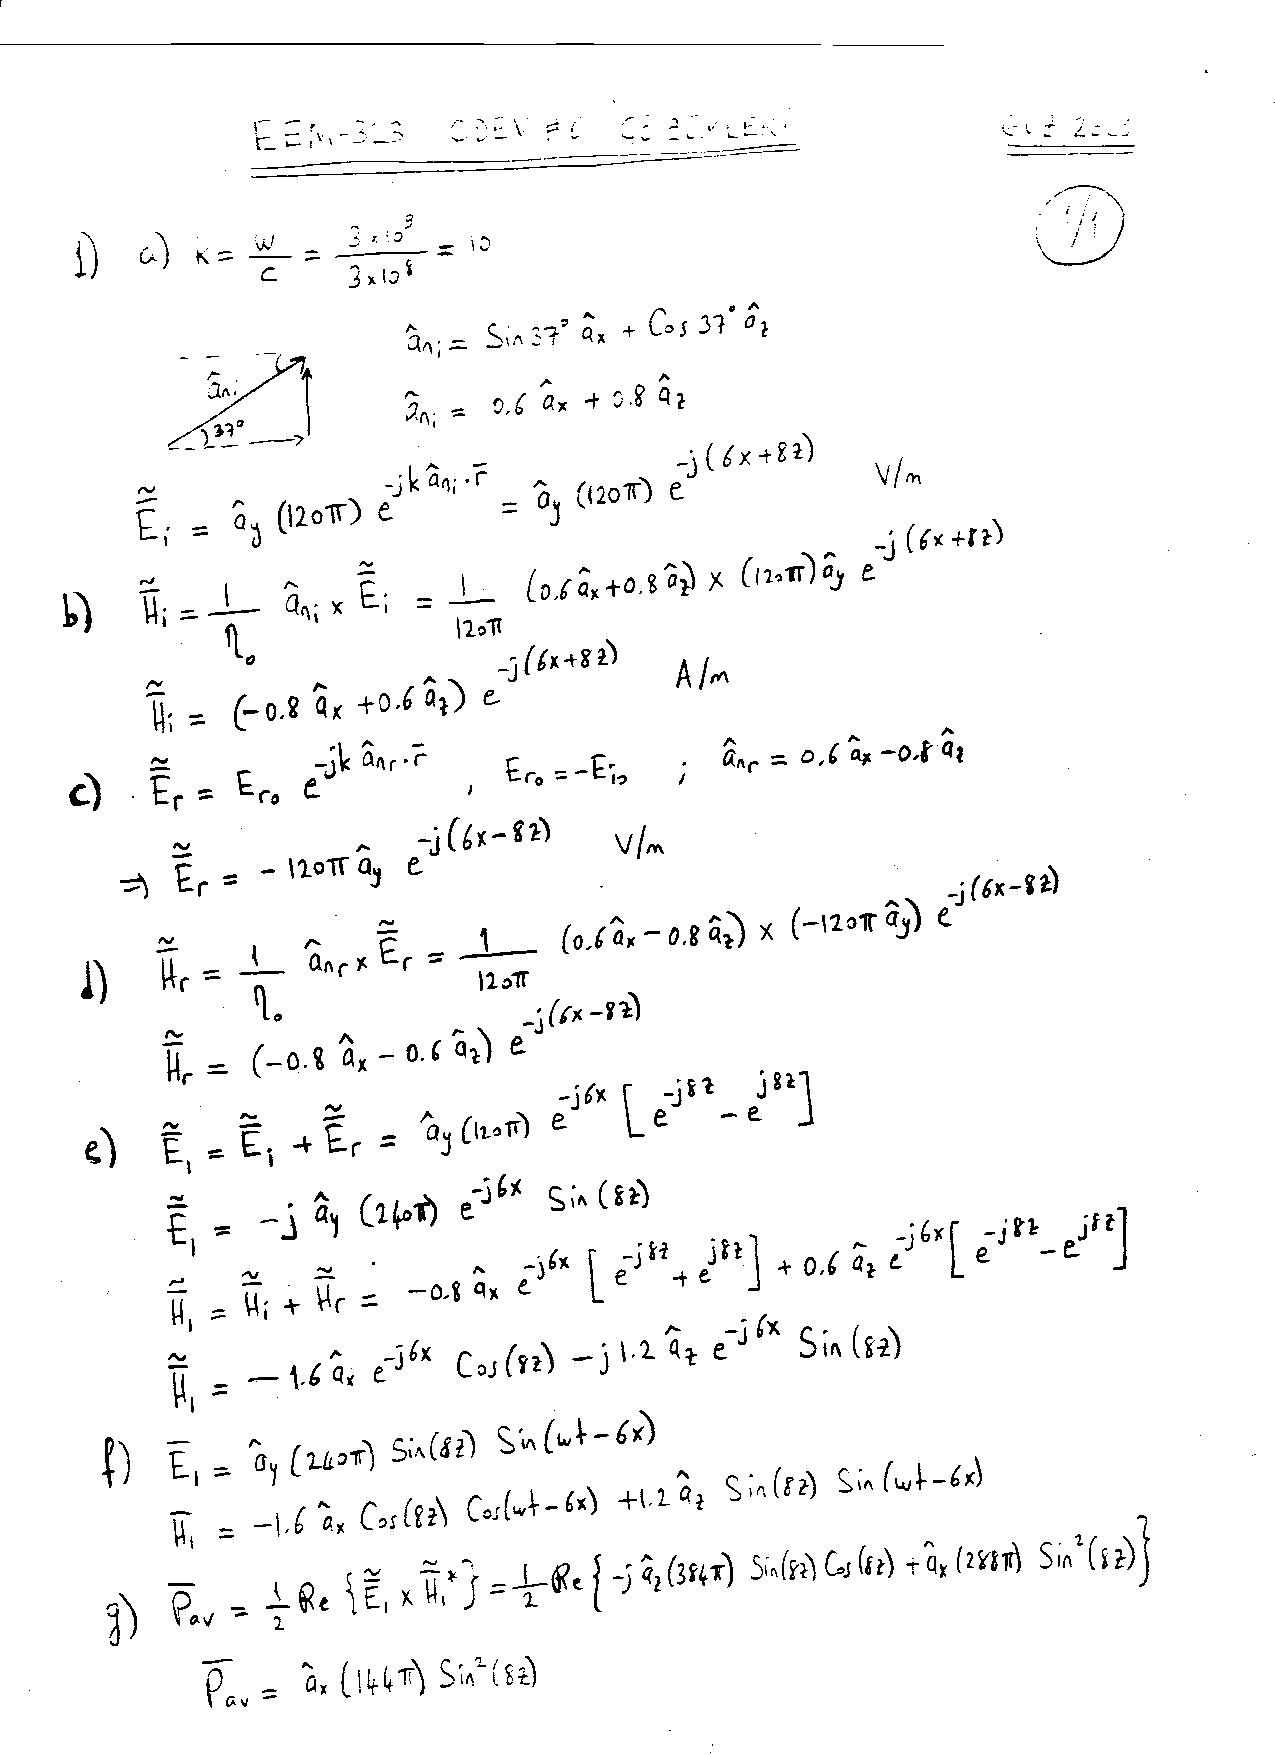 EEM-323 ÖDEV #6 ÇÖZÜMLERİ
1/1
1) a) k = w/c = 3x10⁹ / 3x10⁸ = 10
â_ni = Sin37° â_x + Cos 37° â_z
â_ni 37°
â_ni = 0.6 â_x + 0.8 â_z
Ẽ_i = â_y (120π) e^{-jk â_ni · r̄} = â_y (120π) e^{-j(6x+8z)} V/m
b) H̃_i = 1/η₀ â_ni x Ẽ_i = 1/120π (0.6 â_x + 0.8 â_z) x (120π) â_y e^{-j(6x+8z)}
H̃_i = (-0.8 â_x + 0.6 â_z) e^{-j(6x+8z)} A/m
c) Ẽ_r = E_ro e^{-jk â_nr · r̄} , E_ro = -E_io ; â_nr = 0.6 â_x - 0.8 â_z
⇒ Ẽ_r = - 120π â_y e^{-j(6x-8z)} V/m
d) H̃_r = 1/η₀ â_nr x Ẽ_r = 1/120π (0.6 â_x - 0.8 â_z) x (-120π â_y) e^{-j(6x-8z)}
H̃_r = (-0.8 â_x - 0.6 â_z) e^{-j(6x-8z)}
e) Ẽ_1 = Ẽ_i + Ẽ_r = â_y (120π) e^{-j6x} [e^{-j8z} - e^{j8z}]
Ẽ_1 = -j â_y (240π) e^{-j6x} Sin(8z)
H̃_1 = H̃_i + H̃_r = -0.8 â_x e^{-j6x} [e^{-j8z} + e^{j8z}] + 0.6 â_z e^{-j6x} [e^{-j8z} - e^{j8z}]
H̃_1 = -1.6 â_x e^{-j6x} Cos(8z) - j1.2 â_z e^{-j6x} Sin(8z)
f) Ē_1 = â_y (240π) Sin(8z) Sin(wt-6x)
H̄_1 = -1.6 â_x Cos(8z) Cos(wt-6x) + 1.2 â_z Sin(8z) Sin(wt-6x)
g) P̄_av = 1/2 Re {Ẽ_1 x H̃_1*} = 1/2 Re {-j â_z (384π) Sin(8z) Cos(8z) + â_x (288π) Sin²(8z)}
P̄_av = â_x (144π) Sin²(8z)